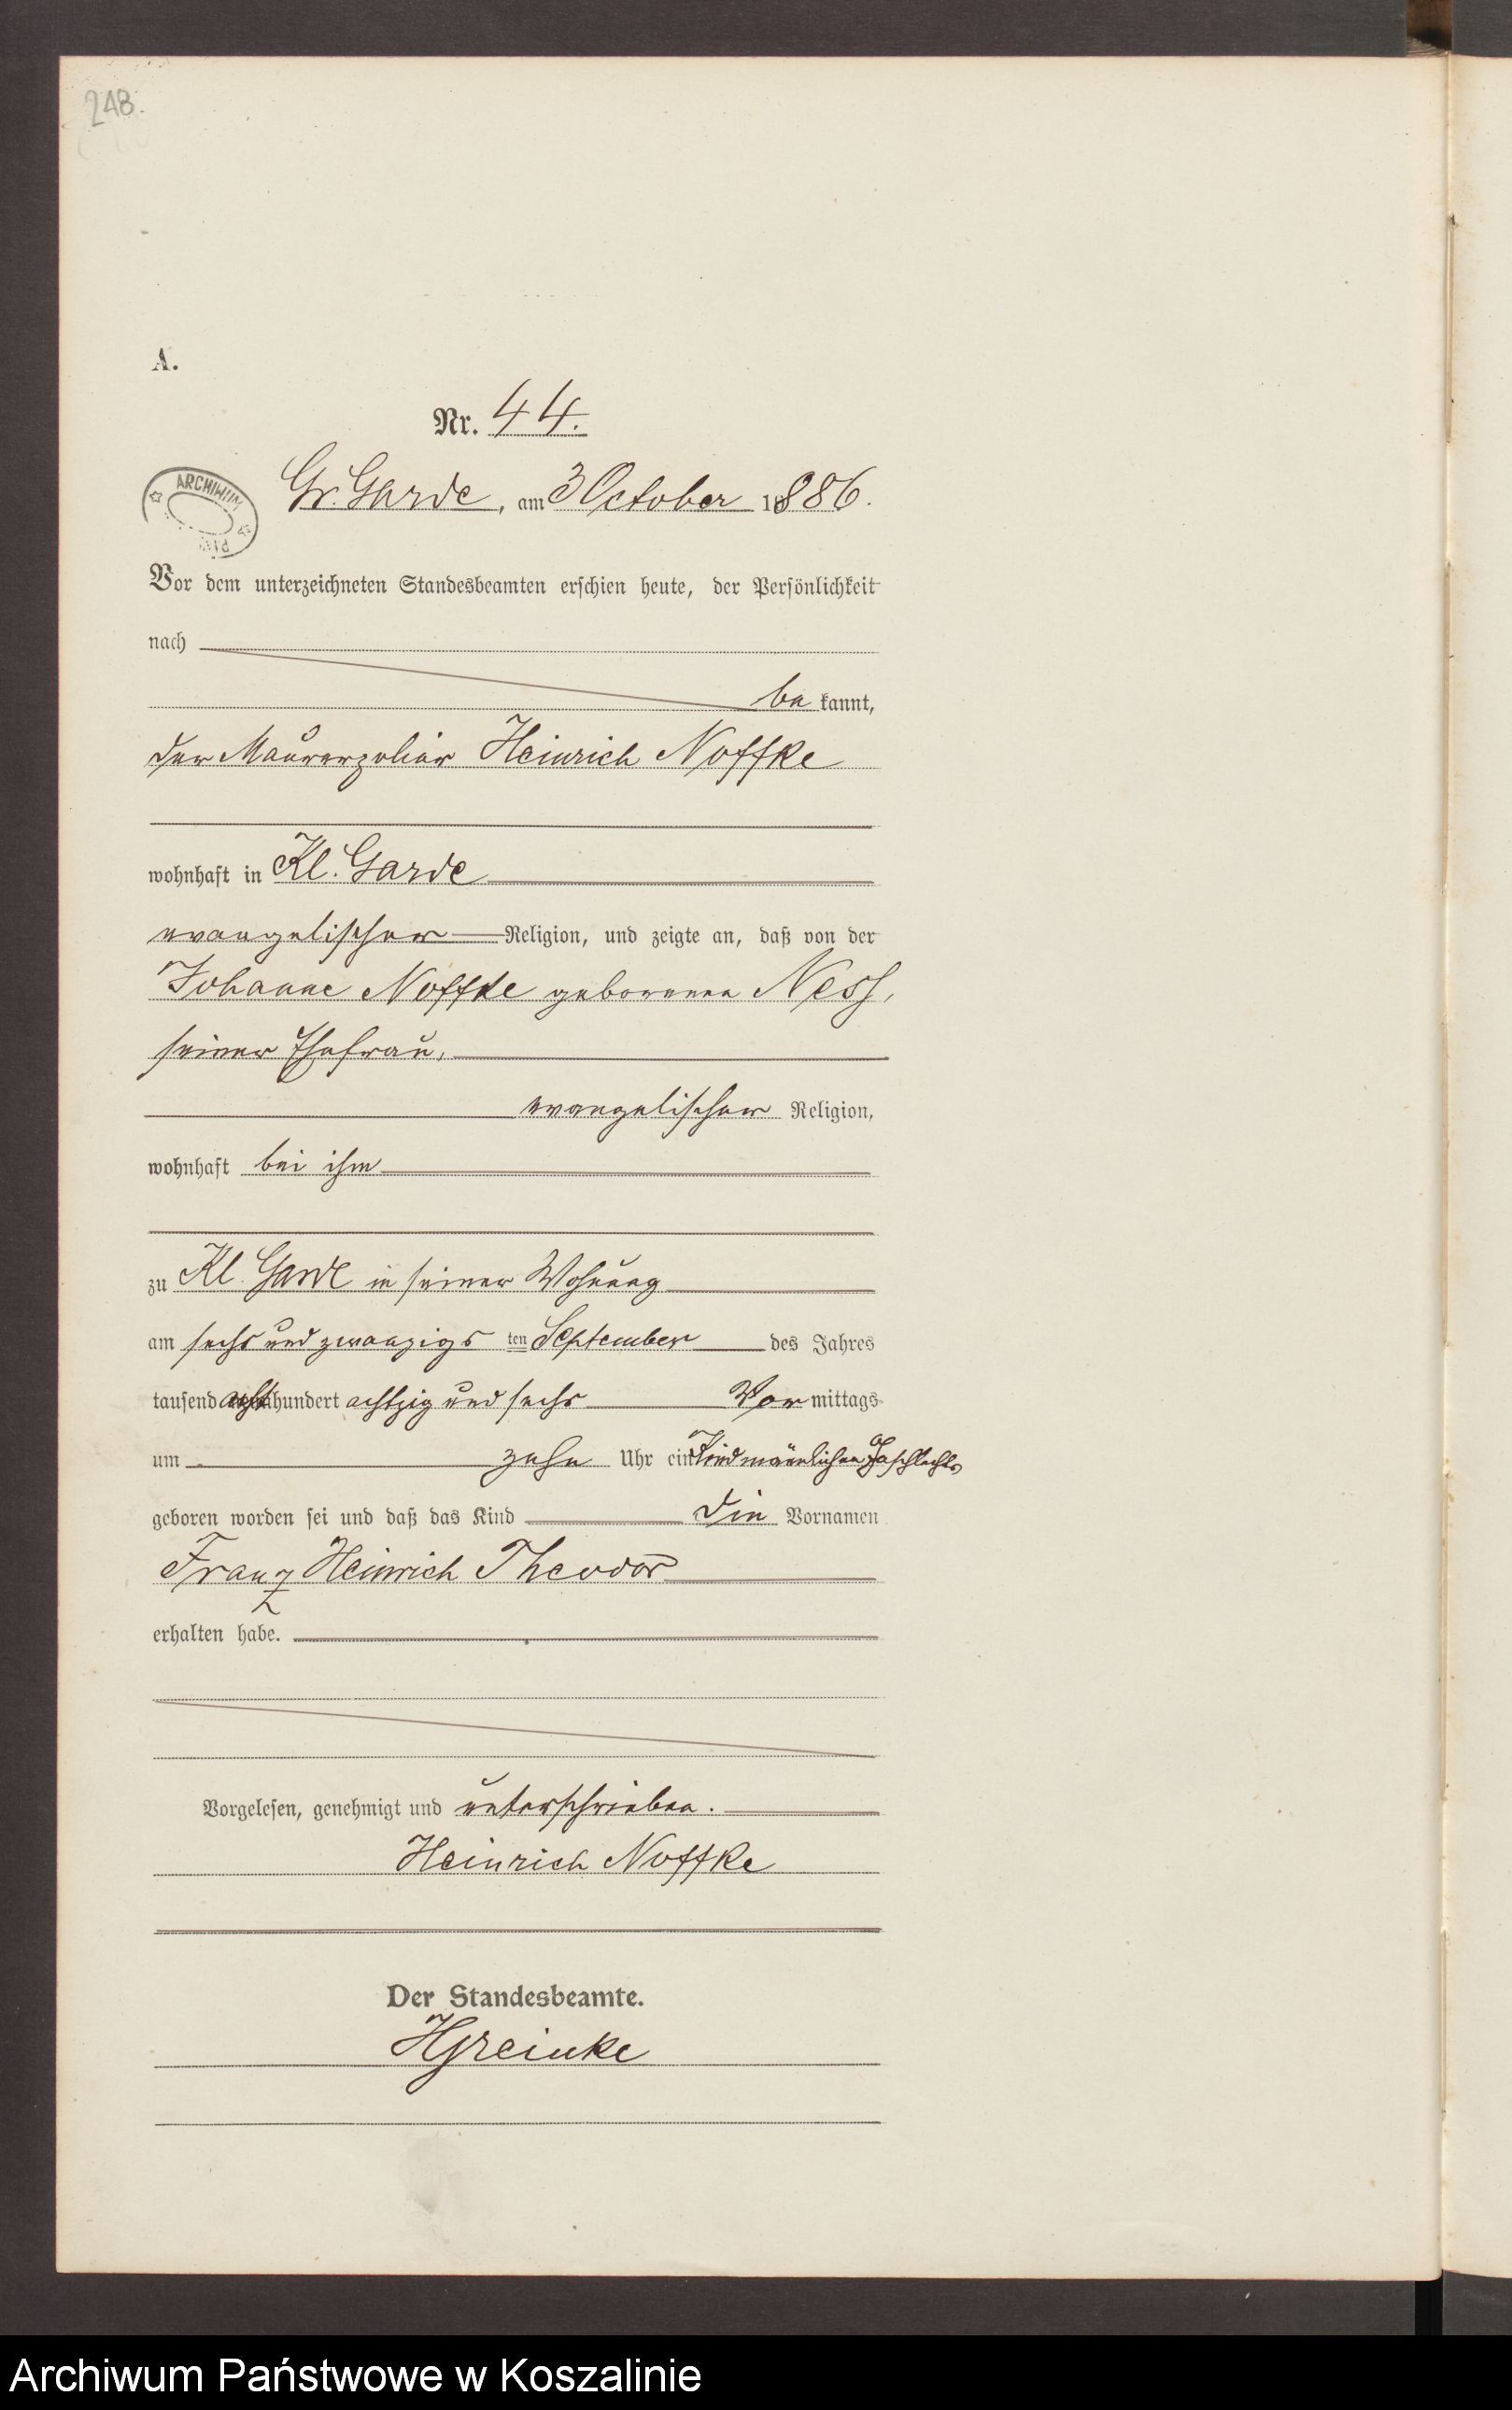 248.
A.
Nr. 44.
ARCHIWUM
Gr. Garde, am 3 October 1886.
Vor dem unterzeichneten Standesbeamten erschien heute, der Persönlichkeit
nach
be kannt,
der Maurerpolier Heinrich Noffke
wohnhaft in Kl. Garde
evangelischer Religion, und zeigte an, daß von der
Johanne Noffke geborenen Ness,
seiner Ehefrau,
evangelischer Religion,
wohnhaft bei ihm
zu Kl. Garde in seiner Wohnung
am sechs und zwanzigs ten September des Jahres
tausend acht hundert achtzig und sechs Vor mittags
um zehn Uhr ein Kind männlichen Geschlechts
geboren worden sei und daß das Kind die Vornamen
Franz Heinrich Theodor
erhalten habe.
Vorgelesen, genehmigt und unterschrieben.
Heinrich Noffke
Der Standesbeamte.
Archiwum Państwowe w Koszalinie